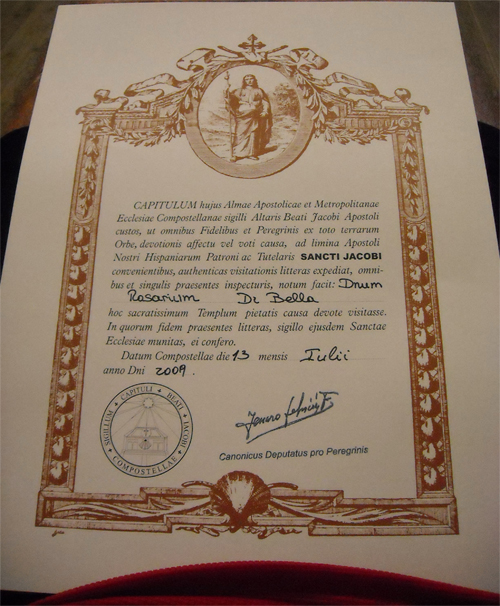 CAPITULUM hujus Almae Apostolicae et Metropolitanae
Ecclesiae Compostellanae sigilli Altaris Beati Jacobi Apostoli
custos, ut omnibus Fidelibus et Peregrinis ex toto terrarum
Orbe, devotionis affectu vel voti causa, ad limina Apostoli
Nostri Hispaniarum Patroni ac Tutelaris SANCTI JACOBI
convenientibus, authenticas visitationis litteras expediat, omni-
bus et singulis praesentes inspecturis, notum facit: Dnam
Rosarium Di Bella
hoc sacratissimum Templum pietatis causa devote visitasse.
In quorum fidem praesentes litteras, sigillo ejusdem Sanctae
Ecclesiae munitas, ei confero.
Datum Compostellae die 13 mensis Iulii
anno Dni 2009.
SIGILLUM CAPITULI BEATI JACOBI COMPOSTELLAE
Canonicus Deputatus pro Peregrinis